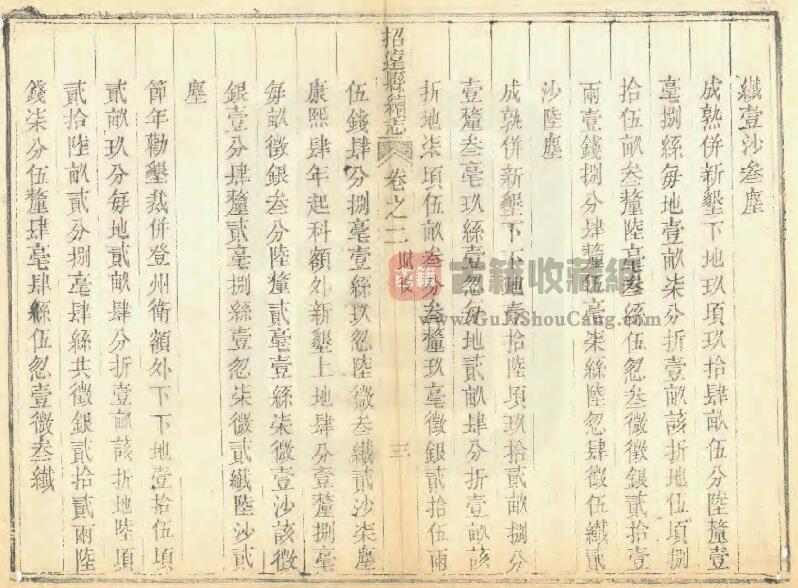 纖壹沙叁塵
成熟併新墾下地玖項玖拾肆畝伍分陸釐壹
亳捌絲每地壹畝柒分折壹畝該折地伍項捌
拾伍畝叁釐陸亳叁絲伍忽叁微徵銀貳拾壹
兩壹錢捌分肆釐伍亳柒絲陸忽肆微伍纖貳
沙陸塵
成熟併新墾下下地壹拾陸項玖拾貳畝捌分
壹釐叁亳玖絲壹忽每地貳畝肆分折壹畝該
折地柒項伍畝叁分叁釐玖亳徵銀貳拾伍兩
招遠縣續志 卷之二 財政 三
伍錢肆分捌亳壹絲玖忽陸微叁纖貳沙柒塵
康熙肆年起科額外新墾上地肆分壹釐捌亳
每畝徵銀叁分陸釐貳亳壹絲柒微壹沙該徵
銀壹分肆釐貳亳捌絲壹忽柒微貳纖陸沙貳
塵
節年勸墾裁併登州衛額外下下地壹拾伍項
貳畝玖分每地貳畝肆分折壹畝該折地陸項
貳拾陸畝貳分捌亳肆絲共徵銀貳拾貳兩陸
錢柒分伍釐肆亳肆絲伍忽壹微叁纖
古籍 古籍收藏網
www.GuJiShouCang.com